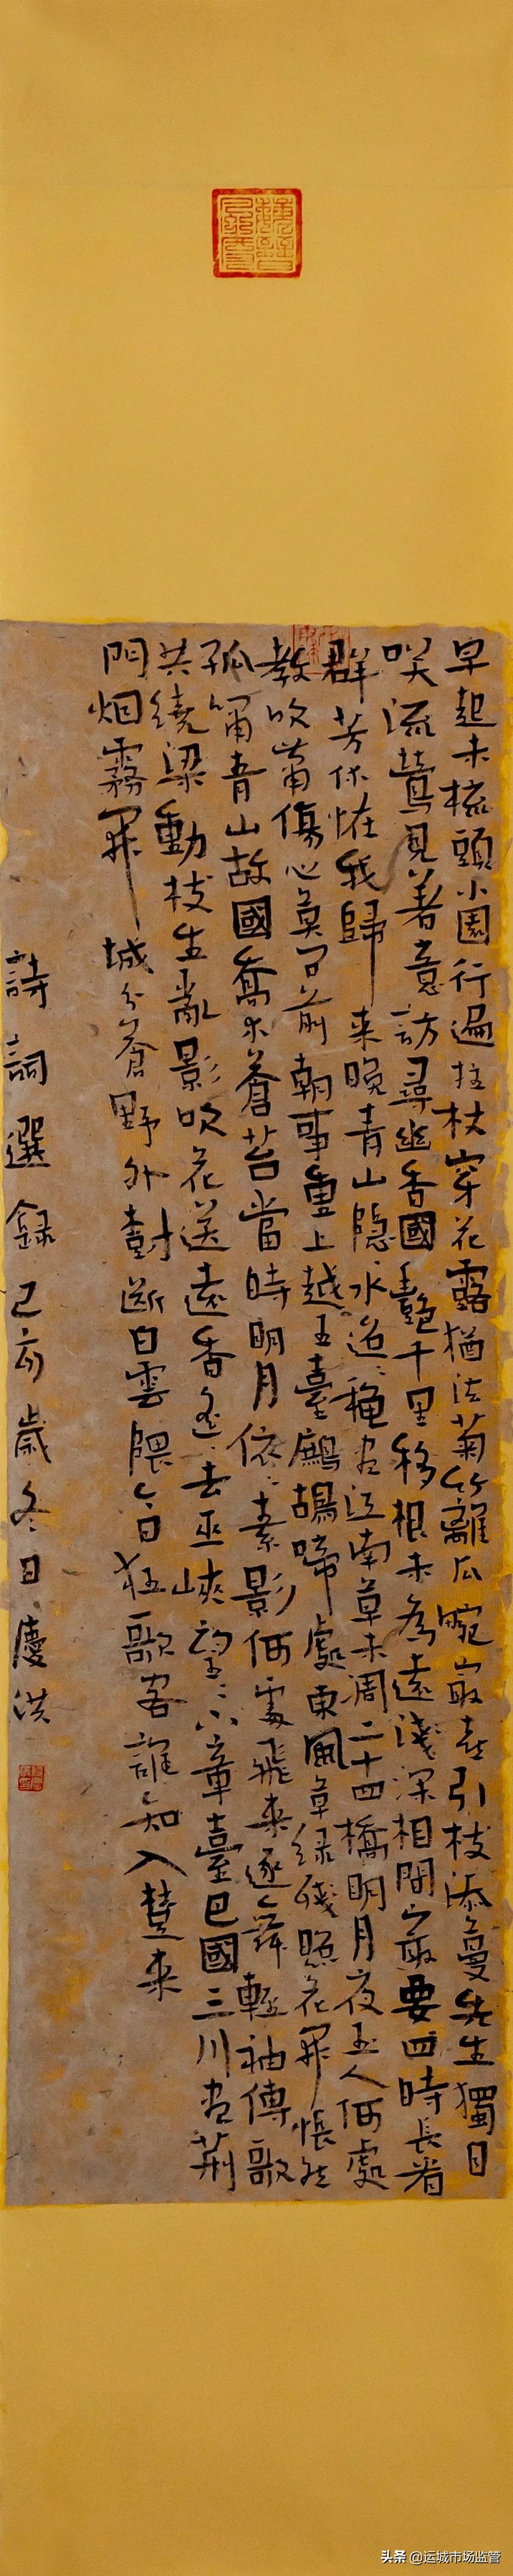 早起未梳頭小園行遍拄杖穿花露猶泫菊竹籬瓜畹最喜引枝添蔓先生獨自
咲流鶯見着意訪尋幽香國艷千里移根未為遠淺深相間最要四時長看
群芳休怪我歸来晚青山隐隐水迢迢穐盡江南草未凋二十四橋明月夜玉人何處
教吹簫傷心莫問前朝事重上越王臺鷓鴣啼處東風草綠殘照花開悵然
孤嘯青山故國喬木蒼苔當時明月依依素影何處飛来逐舞輕袖傳歌
共繞梁動枝生亂影吹花送遠香遙去巫峽望望下章臺巴國三川盡荊
門烟霧開城分蒼野外樹斷白雲隈今日狂歌客誰知入楚来
詩詞選錄己亥歲冬日慶洪
头条 @运城市场监管